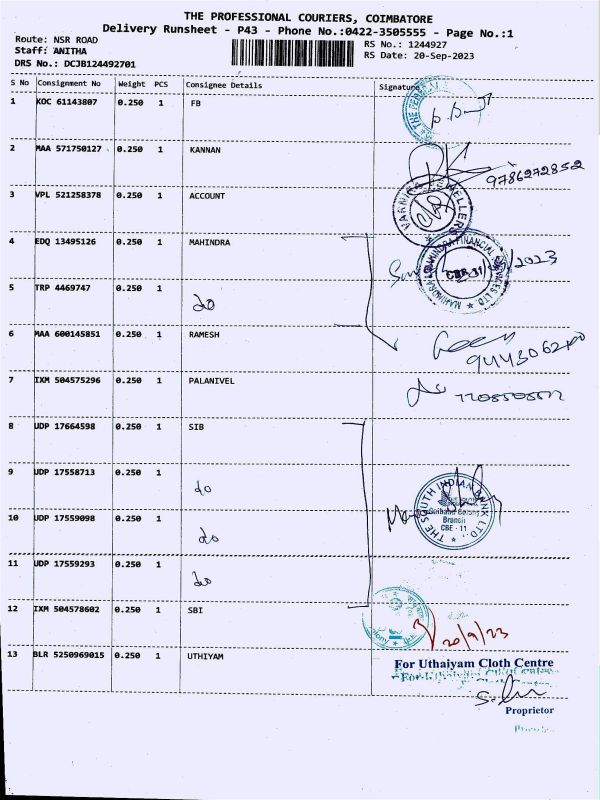 THE PROFESSIONAL COURIERS, COIMBATORE
Delivery Runsheet - P43 - Phone No.:0422-3505555 - Page No.:1
Route: NSR ROAD
RS No.: 1244927
Staff: ANITHA
RS Date: 20-Sep-2023
DRS No.: DCJB124492701
S No Consignment No Weight PCS Consignee Details Signature
1 KOC 61143807 0.250 1 FB
2 MAA 571750127 0.250 1 KANNAN
9786272852
3 VPL 521258378 0.250 1 ACCOUNT
4 EDQ 13495126 0.250 1 MAHINDRA
MAHINDRA & MAHINDRA FINANCIAL SERVICES LTD.
2023
5 TRP 4469747 0.250 1 do
6 MAA 600145851 0.250 1 RAMESH
7 IXM 504575296 0.250 1 PALANIVEL
8 UDP 17664598 0.250 1 SIB
9 UDP 17558713 0.250 1 do
THE SOUTH INDIAN BANK LTD.
Branch
CBE - 11
10 UDP 17559098 0.250 1 do
11 UDP 17559293 0.250 1 do
12 IXM 504578602 0.250 1 SBI
20/9/23
13 BLR 5250969015 0.250 1 UTHIYAM
For Uthaiyam Cloth Centre
Proprietor